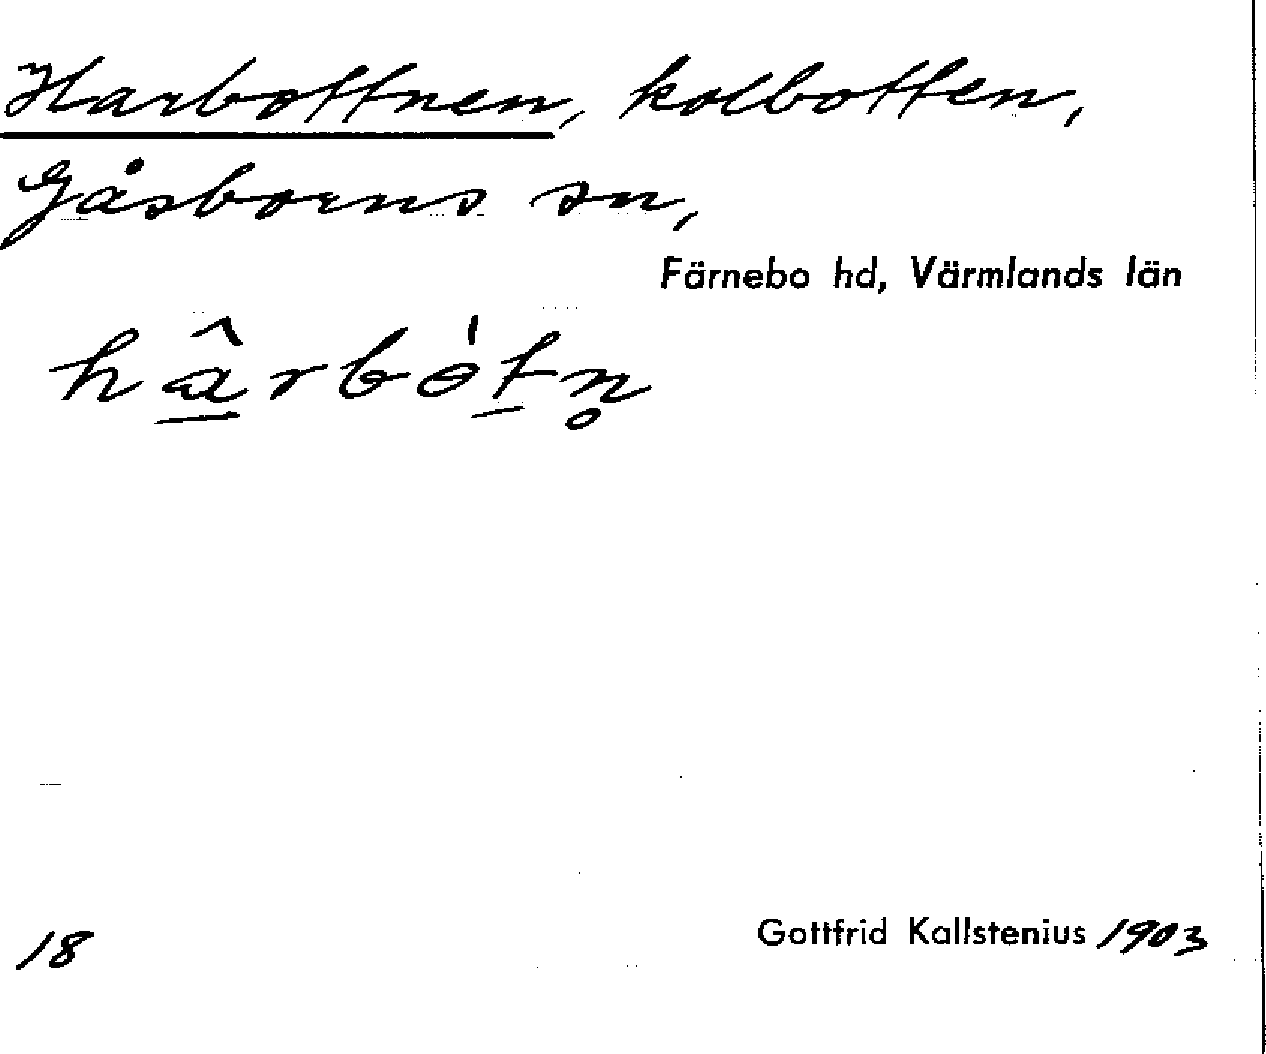 Harbottnen, kolbotten,
Gåsborns sn,
Färnebo hd, Värmlands län
hârbótn̥
18
Gottfrid Kallstenius 1903